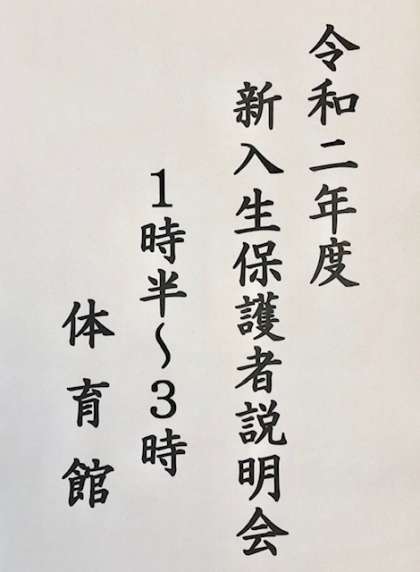 令和二年度
新入生保護者説明会
1時半～3時
体育館